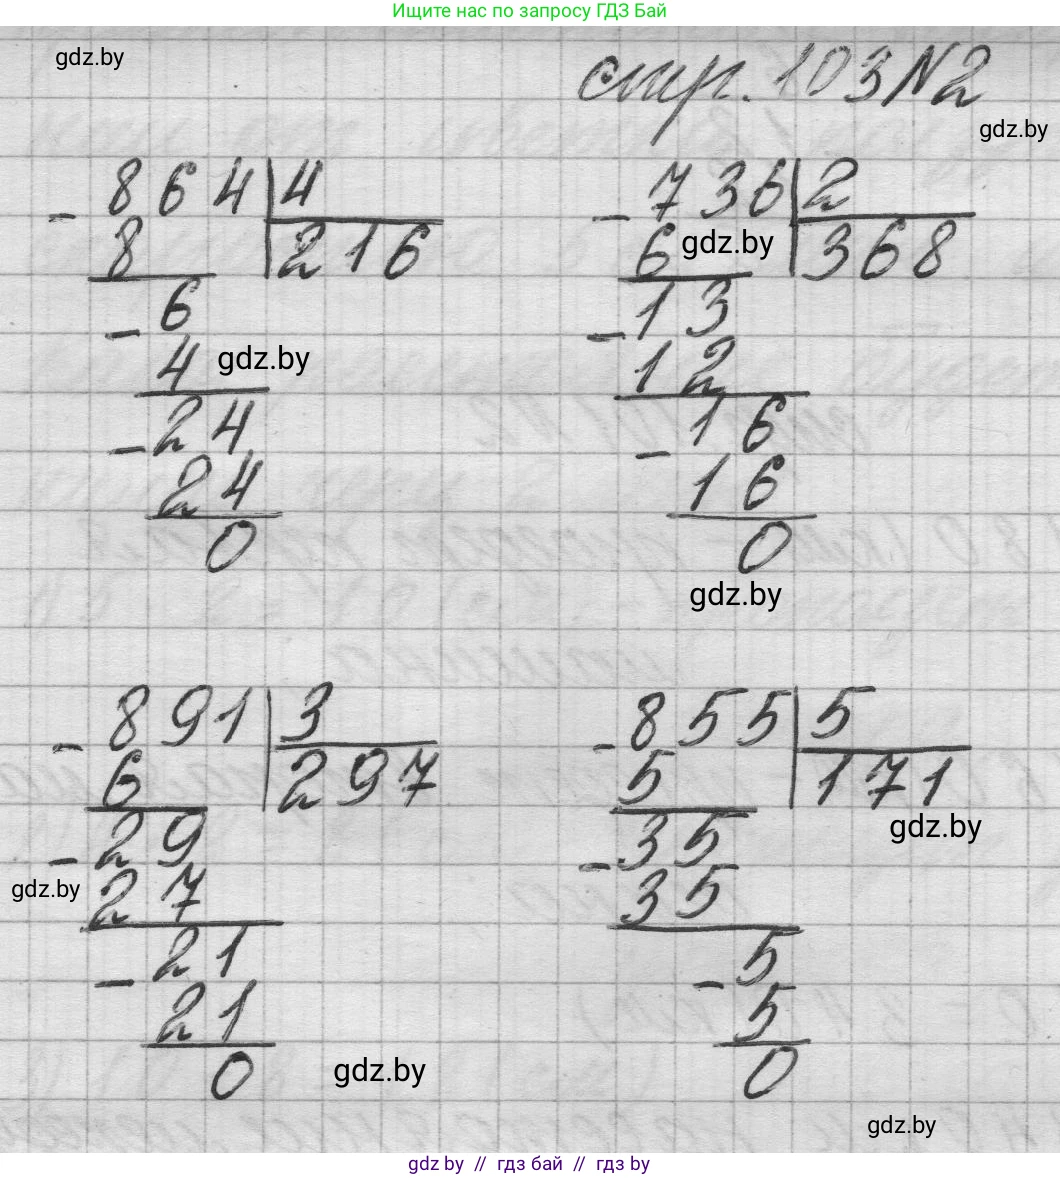 Ищите нас по запросу ГДЗ Бай
gdz.by
стр. 103 №2
gdz.by
864 4
- 8 216
6
- 4
gdz.by
24
- 24
0
736 2
- 6 368
gdz.by
13
- 12
16
- 16
0
gdz.by
891 3
- 6 297
29
- 27
gdz.by
21
- 21
0
gdz.by
855 5
- 5 171
gdz.by
35
- 35
5
- 5
0
gdz.by
gdz by // гдз бай // гдз by